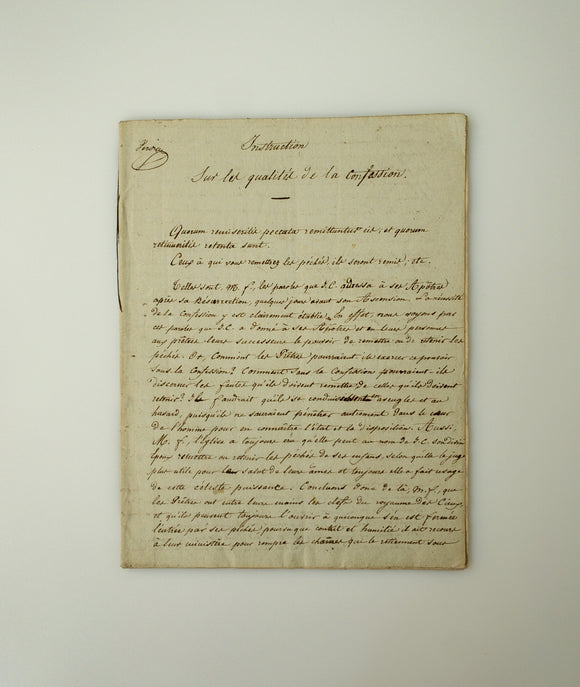 Instruction
Sur les qualités de la Confession.
Quorum remiseritis peccata remittuntur eis, et quorum
retinueritis retenta sunt.
Ceux à qui vous remettrez les péchés, ils seront remis, etc.
Telles sont, M. f., les paroles que J.C. adressa à ses Apôtres
après sa Résurrection, quelques jours avant son Ascension. La nécessité
de la Confession y est clairement établie. En effet, nous voyons par
ces paroles que J.C. a donné à ses Apôtres et en leurs personnes
aux prêtres leurs successeurs le pouvoir de remettre ou de retenir les
péchés. Or, Comment les Prêtres pourraient-ils exercer ce pouvoir
sous la Confession? Comment sous la Confession pourraient-ils
discerner les fautes qu'ils doivent remettre de celles qu'ils doivent
retenir? Il faudrait qu'ils se conduisissent en aveugles et au
hasard, puisqu'ils ne sauraient pénétrer autrement dans le cœur
de l'homme pour en connaître l'état et la disposition. Aussi,
M. f., l'Eglise a toujours cru qu'elle peut au nom de J.C. son divin
Epoux remettre ou retenir les péchés de ses enfans, selon qu'elle le juge
plus utile pour le salut de leurs âmes et toujours elle a fait usage
de cette céleste puissance. Concluons donc de là, M. f., que
les Prêtres ont entre leurs mains les clefs du royaume des Cieux,
et qu'ils peuvent toujours l'ouvrir à quiconque s'en est fermé
l'entrée par ses péchés pourvu que contrit et humilié il ait recours
à leur ministère pour rompre les chaînes qui le retiennent sous